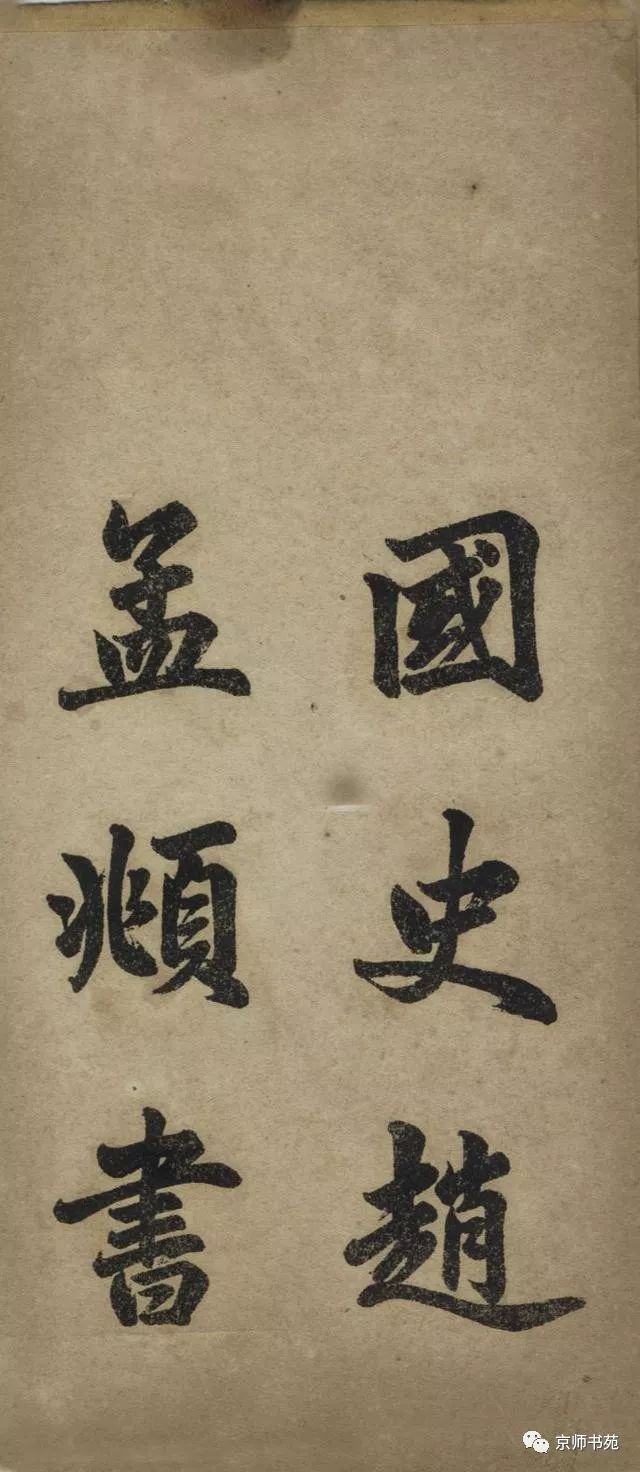 國史趙
孟頫書
京师书苑